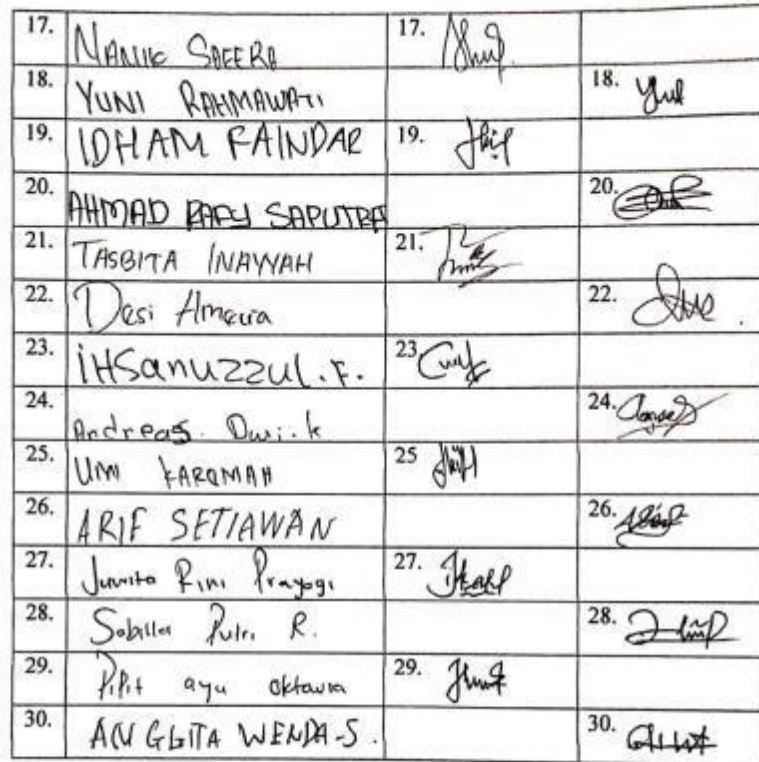 17. NANIK SAFERA 17.
18. YUNI RAHMAWATI 18. Yuni
19. IDHAM FAINDAR 19.
20. AHMAD RAFY SAPUTRA 20.
21. TASBITA INAYYAH 21.
22. Desi Ameura 22.
23. iHSanuzzul.F. 23
24. Andreas. Dwi.k 24.
25. UMI KAROMAH 25
26. ARIF SETIAWAN 26.
27. Juwita Rini Prayogi 27.
28. Sabilla Putri R. 28.
29. Pipit ayu oktavia 29.
30. ANGGITA WENDA-S. 30.